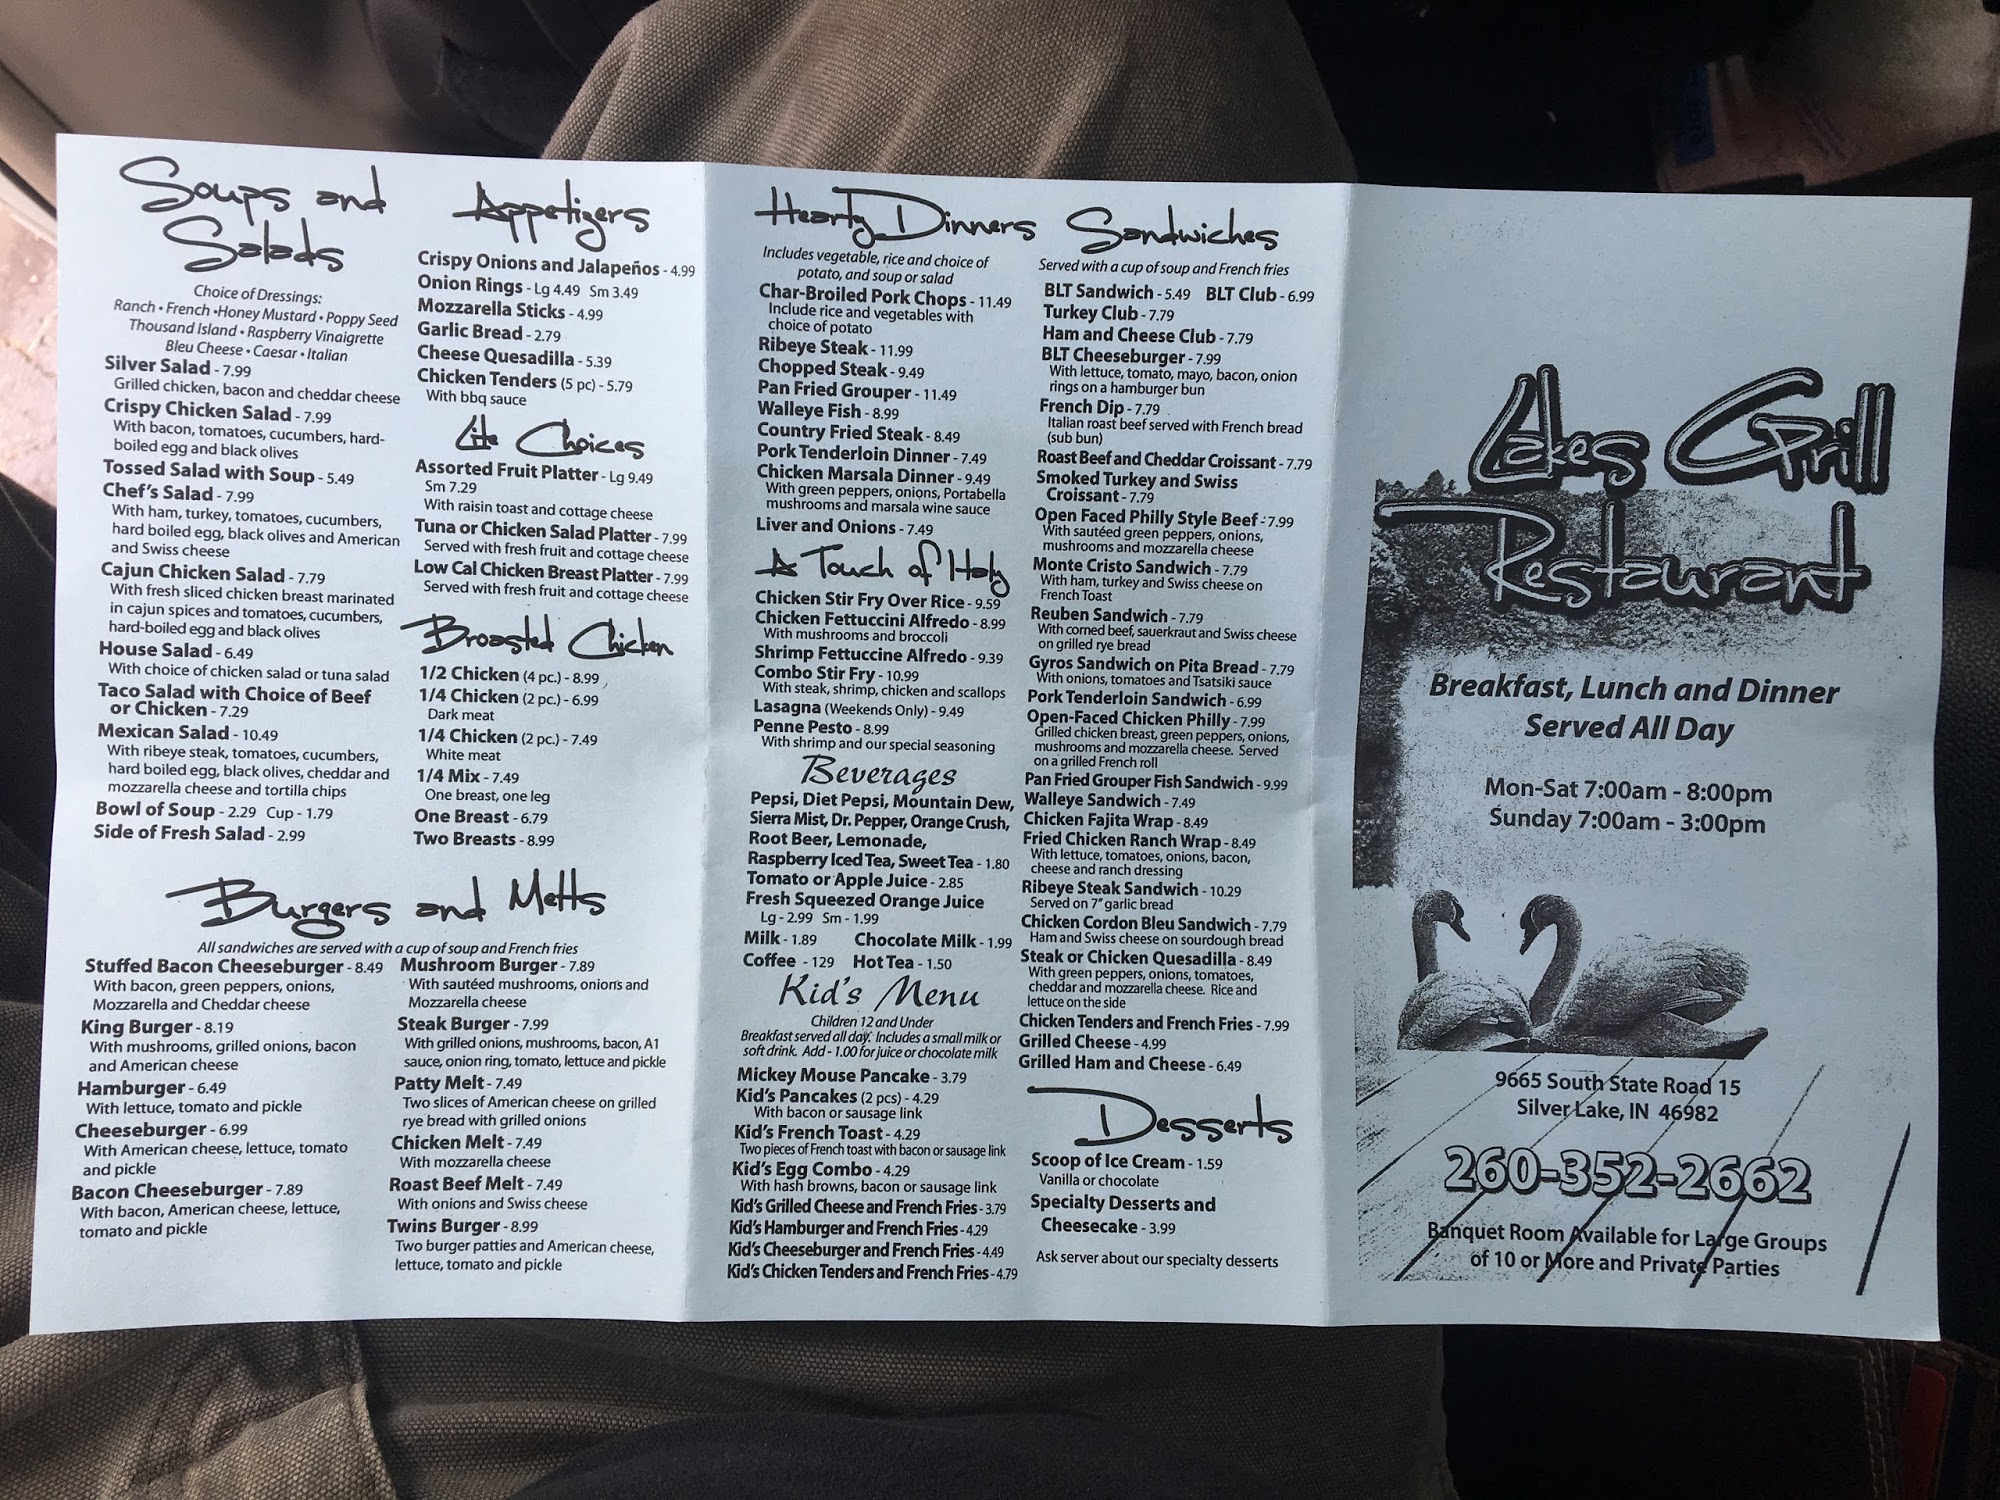 Soups and
Salads
Choice of Dressings:
Ranch • French •Honey Mustard • Poppy Seed
Thousand Island • Raspberry Vinaigrette
Bleu Cheese • Caesar • Italian
Silver Salad - 7.99
Grilled chicken, bacon and cheddar cheese
Crispy Chicken Salad - 7.99
With bacon, tomatoes, cucumbers, hard-
boiled egg and black olives
Tossed Salad with Soup - 5.49
Chef's Salad - 7.99
With ham, turkey, tomatoes, cucumbers,
hard boiled egg, black olives and American
and Swiss cheese
Cajun Chicken Salad - 7.79
With fresh sliced chicken breast marinated
in cajun spices and tomatoes, cucumbers,
hard-boiled egg and black olives
House Salad - 6.49
With choice of chicken salad or tuna salad
Taco Salad with Choice of Beef
or Chicken - 7.29
Mexican Salad - 10.49
With ribeye steak, tomatoes, cucumbers,
hard boiled egg, black olives, cheddar and
mozzarella cheese and tortilla chips
Bowl of Soup - 2.29 Cup - 1.79
Side of Fresh Salad - 2.99
Appetizers
Crispy Onions and Jalapeños - 4.99
Onion Rings - Lg 4.49 Sm 3.49
Mozzarella Sticks - 4.99
Garlic Bread - 2.79
Cheese Quesadilla - 5.39
Chicken Tenders (5 pc) - 5.79
With bbq sauce
Lite Choices
Assorted Fruit Platter - Lg 9.49
Sm 7.29
With raisin toast and cottage cheese
Tuna or Chicken Salad Platter - 7.99
Served with fresh fruit and cottage cheese
Low Cal Chicken Breast Platter - 7.99
Served with fresh fruit and cottage cheese
Broasted Chicken
1/2 Chicken (4 pc.) - 8.99
1/4 Chicken (2 pc.) - 6.99
Dark meat
1/4 Chicken (2 pc.) - 7.49
White meat
1/4 Mix - 7.49
One breast, one leg
One Breast - 6.79
Two Breasts - 8.99
Burgers and Melts
All sandwiches are served with a cup of soup and French fries
Stuffed Bacon Cheeseburger - 8.49
With bacon, green peppers, onions,
Mozzarella and Cheddar cheese
King Burger - 8.19
With mushrooms, grilled onions, bacon
and American cheese
Hamburger - 6.49
With lettuce, tomato and pickle
Cheeseburger - 6.99
With American cheese, lettuce, tomato
and pickle
Bacon Cheeseburger - 7.89
With bacon, American cheese, lettuce,
tomato and pickle
Mushroom Burger - 7.89
With sautéed mushrooms, onions and
Mozzarella cheese
Steak Burger - 7.99
With grilled onions, mushrooms, bacon, A1
sauce, onion ring, tomato, lettuce and pickle
Patty Melt - 7.49
Two slices of American cheese on grilled
rye bread with grilled onions
Chicken Melt - 7.49
With mozzarella cheese
Roast Beef Melt - 7.49
With onions and Swiss cheese
Twins Burger - 8.99
Two burger patties and American cheese,
lettuce, tomato and pickle
Hearty Dinners
Includes vegetable, rice and choice of
potato, and soup or salad
Char-Broiled Pork Chops - 11.49
Include rice and vegetables with
choice of potato
Ribeye Steak - 11.99
Chopped Steak - 9.49
Pan Fried Grouper - 11.49
Walleye Fish - 8.99
Country Fried Steak - 8.49
Pork Tenderloin Dinner - 7.49
Chicken Marsala Dinner - 9.49
With green peppers, onions, Portabella
mushrooms and marsala wine sauce
Liver and Onions - 7.49
A Touch of Italy
Chicken Stir Fry Over Rice - 9.59
Chicken Fettuccini Alfredo - 8.99
With mushrooms and broccoli
Shrimp Fettuccine Alfredo - 9.39
Combo Stir Fry - 10.99
With steak, shrimp, chicken and scallops
Lasagna (Weekends Only) - 9.49
Penne Pesto - 8.99
With shrimp and our special seasoning
Beverages
Pepsi, Diet Pepsi, Mountain Dew,
Sierra Mist, Dr. Pepper, Orange Crush,
Root Beer, Lemonade,
Raspberry Iced Tea, Sweet Tea - 1.80
Tomato or Apple Juice - 2.85
Fresh Squeezed Orange Juice
Lg - 2.99 Sm - 1.99
Milk - 1.89 Chocolate Milk - 1.99
Coffee - 129 Hot Tea - 1.50
Kid's Menu
Children 12 and Under
Breakfast served all day. Includes a small milk or
soft drink. Add - 1.00 for juice or chocolate milk
Mickey Mouse Pancake - 3.79
Kid's Pancakes (2 pcs) - 4.29
With bacon or sausage link
Kid's French Toast - 4.29
Two pieces of French toast with bacon or sausage link
Kid's Egg Combo - 4.29
With hash browns, bacon or sausage link
Kid's Grilled Cheese and French Fries - 3.79
Kid's Hamburger and French Fries - 4.29
Kid's Cheeseburger and French Fries - 4.49
Kid's Chicken Tenders and French Fries - 4.79
Sandwiches
Served with a cup of soup and French fries
BLT Sandwich - 5.49 BLT Club - 6.99
Turkey Club - 7.79
Ham and Cheese Club - 7.79
BLT Cheeseburger - 7.99
With lettuce, tomato, mayo, bacon, onion
rings on a hamburger bun
French Dip - 7.79
Italian roast beef served with French bread
(sub bun)
Roast Beef and Cheddar Croissant - 7.79
Smoked Turkey and Swiss
Croissant - 7.79
Open Faced Philly Style Beef - 7.99
With sautéed green peppers, onions,
mushrooms and mozzarella cheese
Monte Cristo Sandwich - 7.79
With ham, turkey and Swiss cheese on
French Toast
Reuben Sandwich - 7.79
With corned beef, sauerkraut and Swiss cheese
on grilled rye bread
Gyros Sandwich on Pita Bread - 7.79
With onions, tomatoes and Tsatsiki sauce
Pork Tenderloin Sandwich - 6.99
Open-Faced Chicken Philly - 7.99
Grilled chicken breast, green peppers, onions,
mushrooms and mozzarella cheese. Served
on a grilled French roll
Pan Fried Grouper Fish Sandwich - 9.99
Walleye Sandwich - 7.49
Chicken Fajita Wrap - 8.49
Fried Chicken Ranch Wrap - 8.49
With lettuce, tomatoes, onions, bacon,
cheese and ranch dressing
Ribeye Steak Sandwich - 10.29
Served on 7" garlic bread
Chicken Cordon Bleu Sandwich - 7.79
Ham and Swiss cheese on sourdough bread
Steak or Chicken Quesadilla - 8.49
With green peppers, onions, tomatoes,
cheddar and mozzarella cheese. Rice and
lettuce on the side
Chicken Tenders and French Fries - 7.99
Grilled Cheese - 4.99
Grilled Ham and Cheese - 6.49
Desserts
Scoop of Ice Cream - 1.59
Vanilla or chocolate
Specialty Desserts and
Cheesecake - 3.99
Ask server about our specialty desserts
Lakes Grill
Restaurant
Breakfast, Lunch and Dinner
Served All Day
Mon-Sat 7:00am - 8:00pm
Sunday 7:00am - 3:00pm
9665 South State Road 15
Silver Lake, IN 46982
260-352-2662
Banquet Room Available for Large Groups
of 10 or More and Private Parties